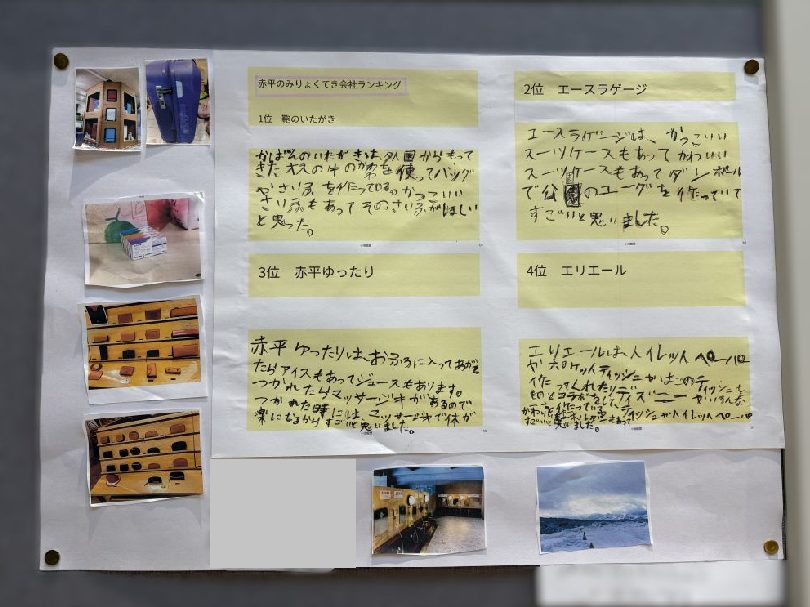 赤平のみりょくてき会社ランキング
1位 鞄のいたがき
かばんのいたがきは、外国からもって
きた本スの牛のかわを使ってバッグ
やさい布を作っている。かっこいい
さい布もあってそのさい布がほしい
と思った。
2位 エースラゲージ
エースラゲージは、かっこいい
スーツケースもあってかわいい
スーツケースもあってダンボール
で公園の
を作っていて
すごいと思いました。
3位 赤平ゆったり
赤平ゆったりは、おふろに入ってあがっ
たらアイスもあってジュースもあります。
つかれたらマッサージキがあるので
つかれた時には、マッサージキで体が
楽になるからすごいと思いました。
4位 エリエール
エリエールはトイレットペーパー
やポケットティッシュやはこのティッシュを
作ってくれたりディズニー
ティッシュやトイレットペーパー
と思いました。